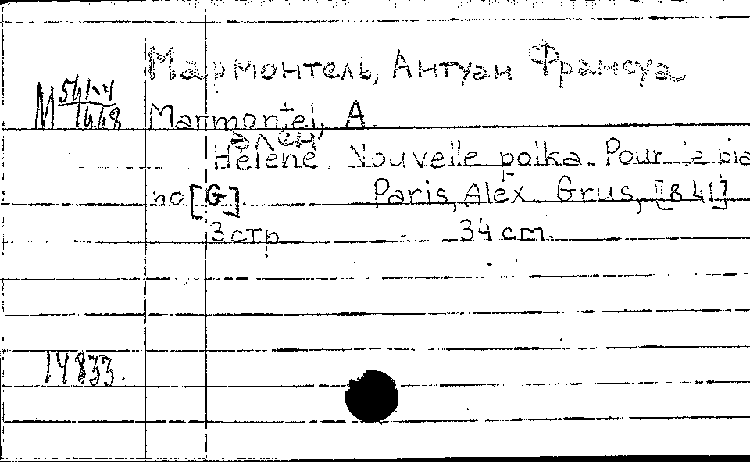 Мармонтель, Антуан Франсуа
М 54
1448
Marmontel, A
Элен,
Hélène. Nouvelle polka. Pour le pia
no [G]. Paris, Alex. Grus, [184]
3 стр 34 cm.
14833.